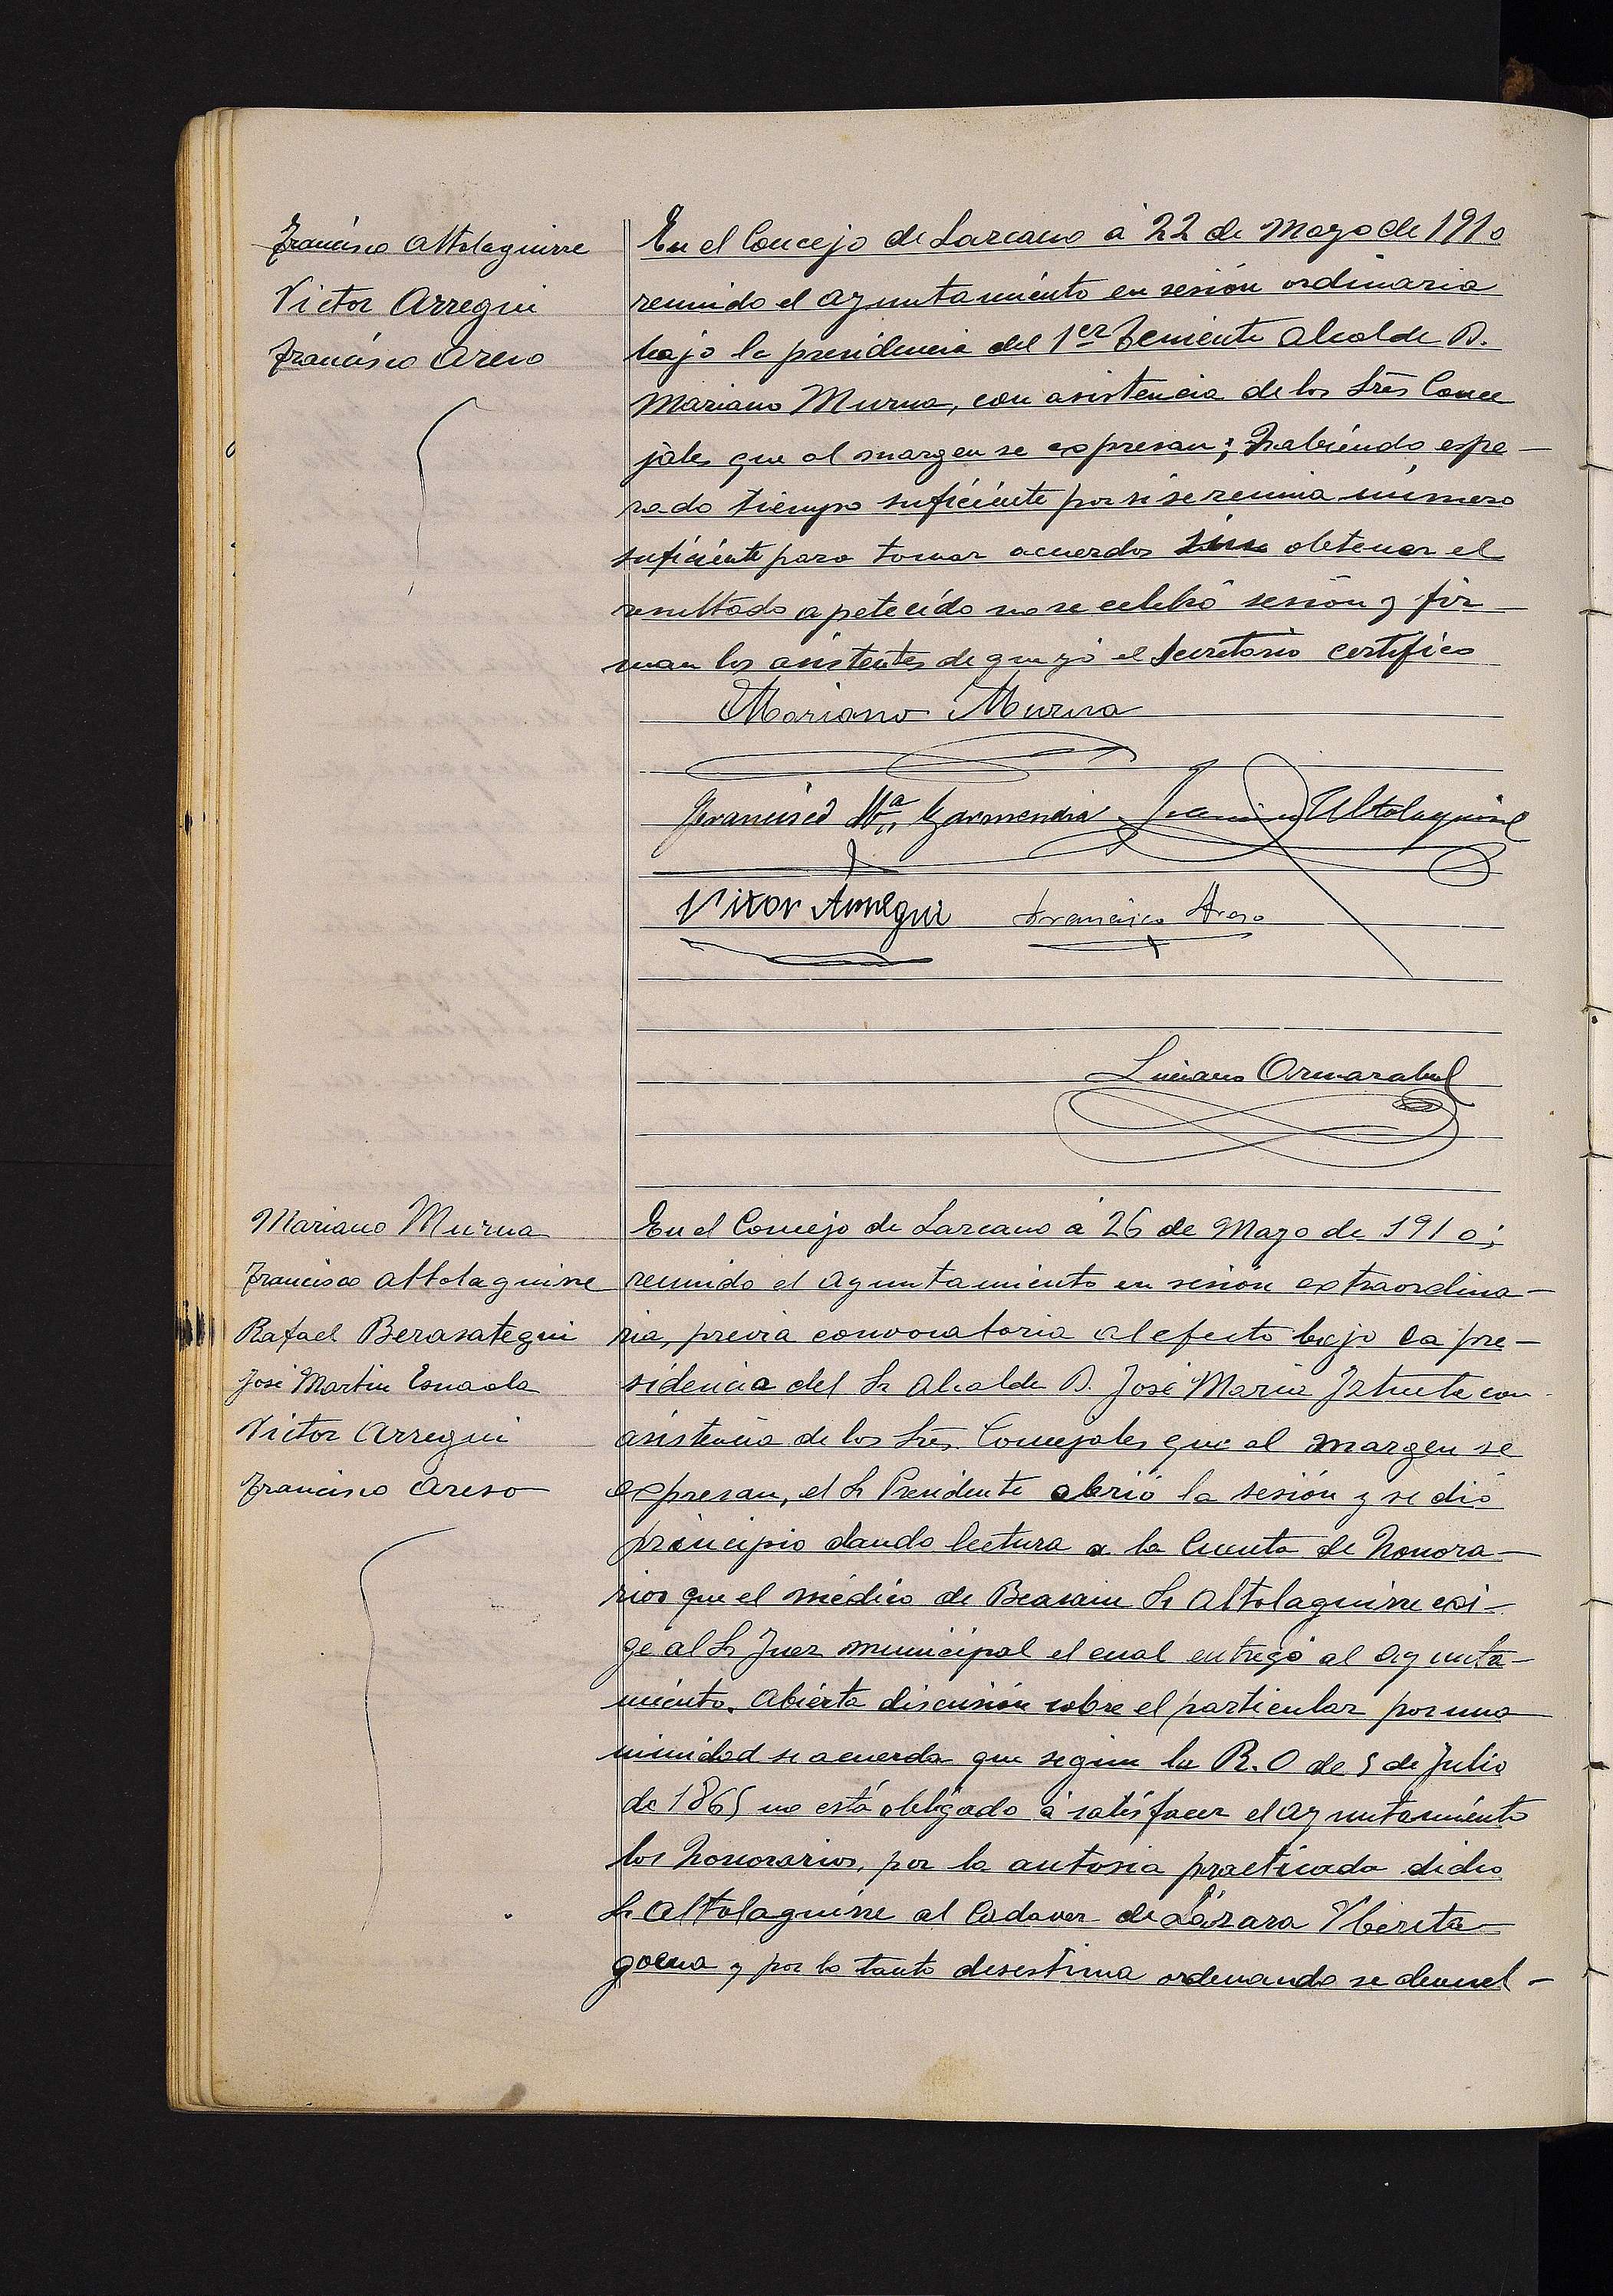 Francisco Altolaguirre
Victor Arregui
Francisco Areso
En el Concejo de Lazcano á 22 de Mayo de 1910
reunido el Ayuntamiento en sesión ordinaria
bajo la presidencia del 1er Teniente Alcalde D.
Mariano Murua, con asistencia de los Sres Conce
jales que al margen se expresan; habiendo espe-
rado tiempo suficiente por si se reunia número
suficiente para tomar acuerdos sin obtener el
resultado apetecido no se celebró sesión y fir
man los asistentes de que yo el Secretario certifico
Mariano Murua
Francisco Mª Garmendia Francisco Altolaguirre
Vitor Arregui Francisco Areso
Luciano Ormazabal
Mariano Murua
Francisco Altolaguirre
Rafael Berasategui
José Martin Esnaola
Victor Arregui
Francisco Areso
En el Concejo de Lazcano á 26 de Mayo de 1910;
reunido el Ayuntamiento en sesion extraordina-
ria, previa convocatoria al efecto bajo la pre-
sidencia del Sr Alcalde D. José Maria Iztueta con
asistencia de los Sres. Concejales que al margen se
expresan, el Sr Presidente abrió la sesión y se dió
principio dando lectura a la Cuenta de honora-
rios que el médico de Beasain Sr Altolaguirre exi-
ge al Sr Juez municipal el cual entregó al Ayunta-
miento. Abierta discusión sobre el particular por una
nimidad se acuerda que segun la R.O de 5 de Julio
de 1865 no está obligado á satisfacer el Ayuntamiento
los honorarios, por la autosia practicada dicho
Sr Altolaguirre al Cadaver de Lázara Yberita
goena y por lo tanto desestima ordenando se devuel-